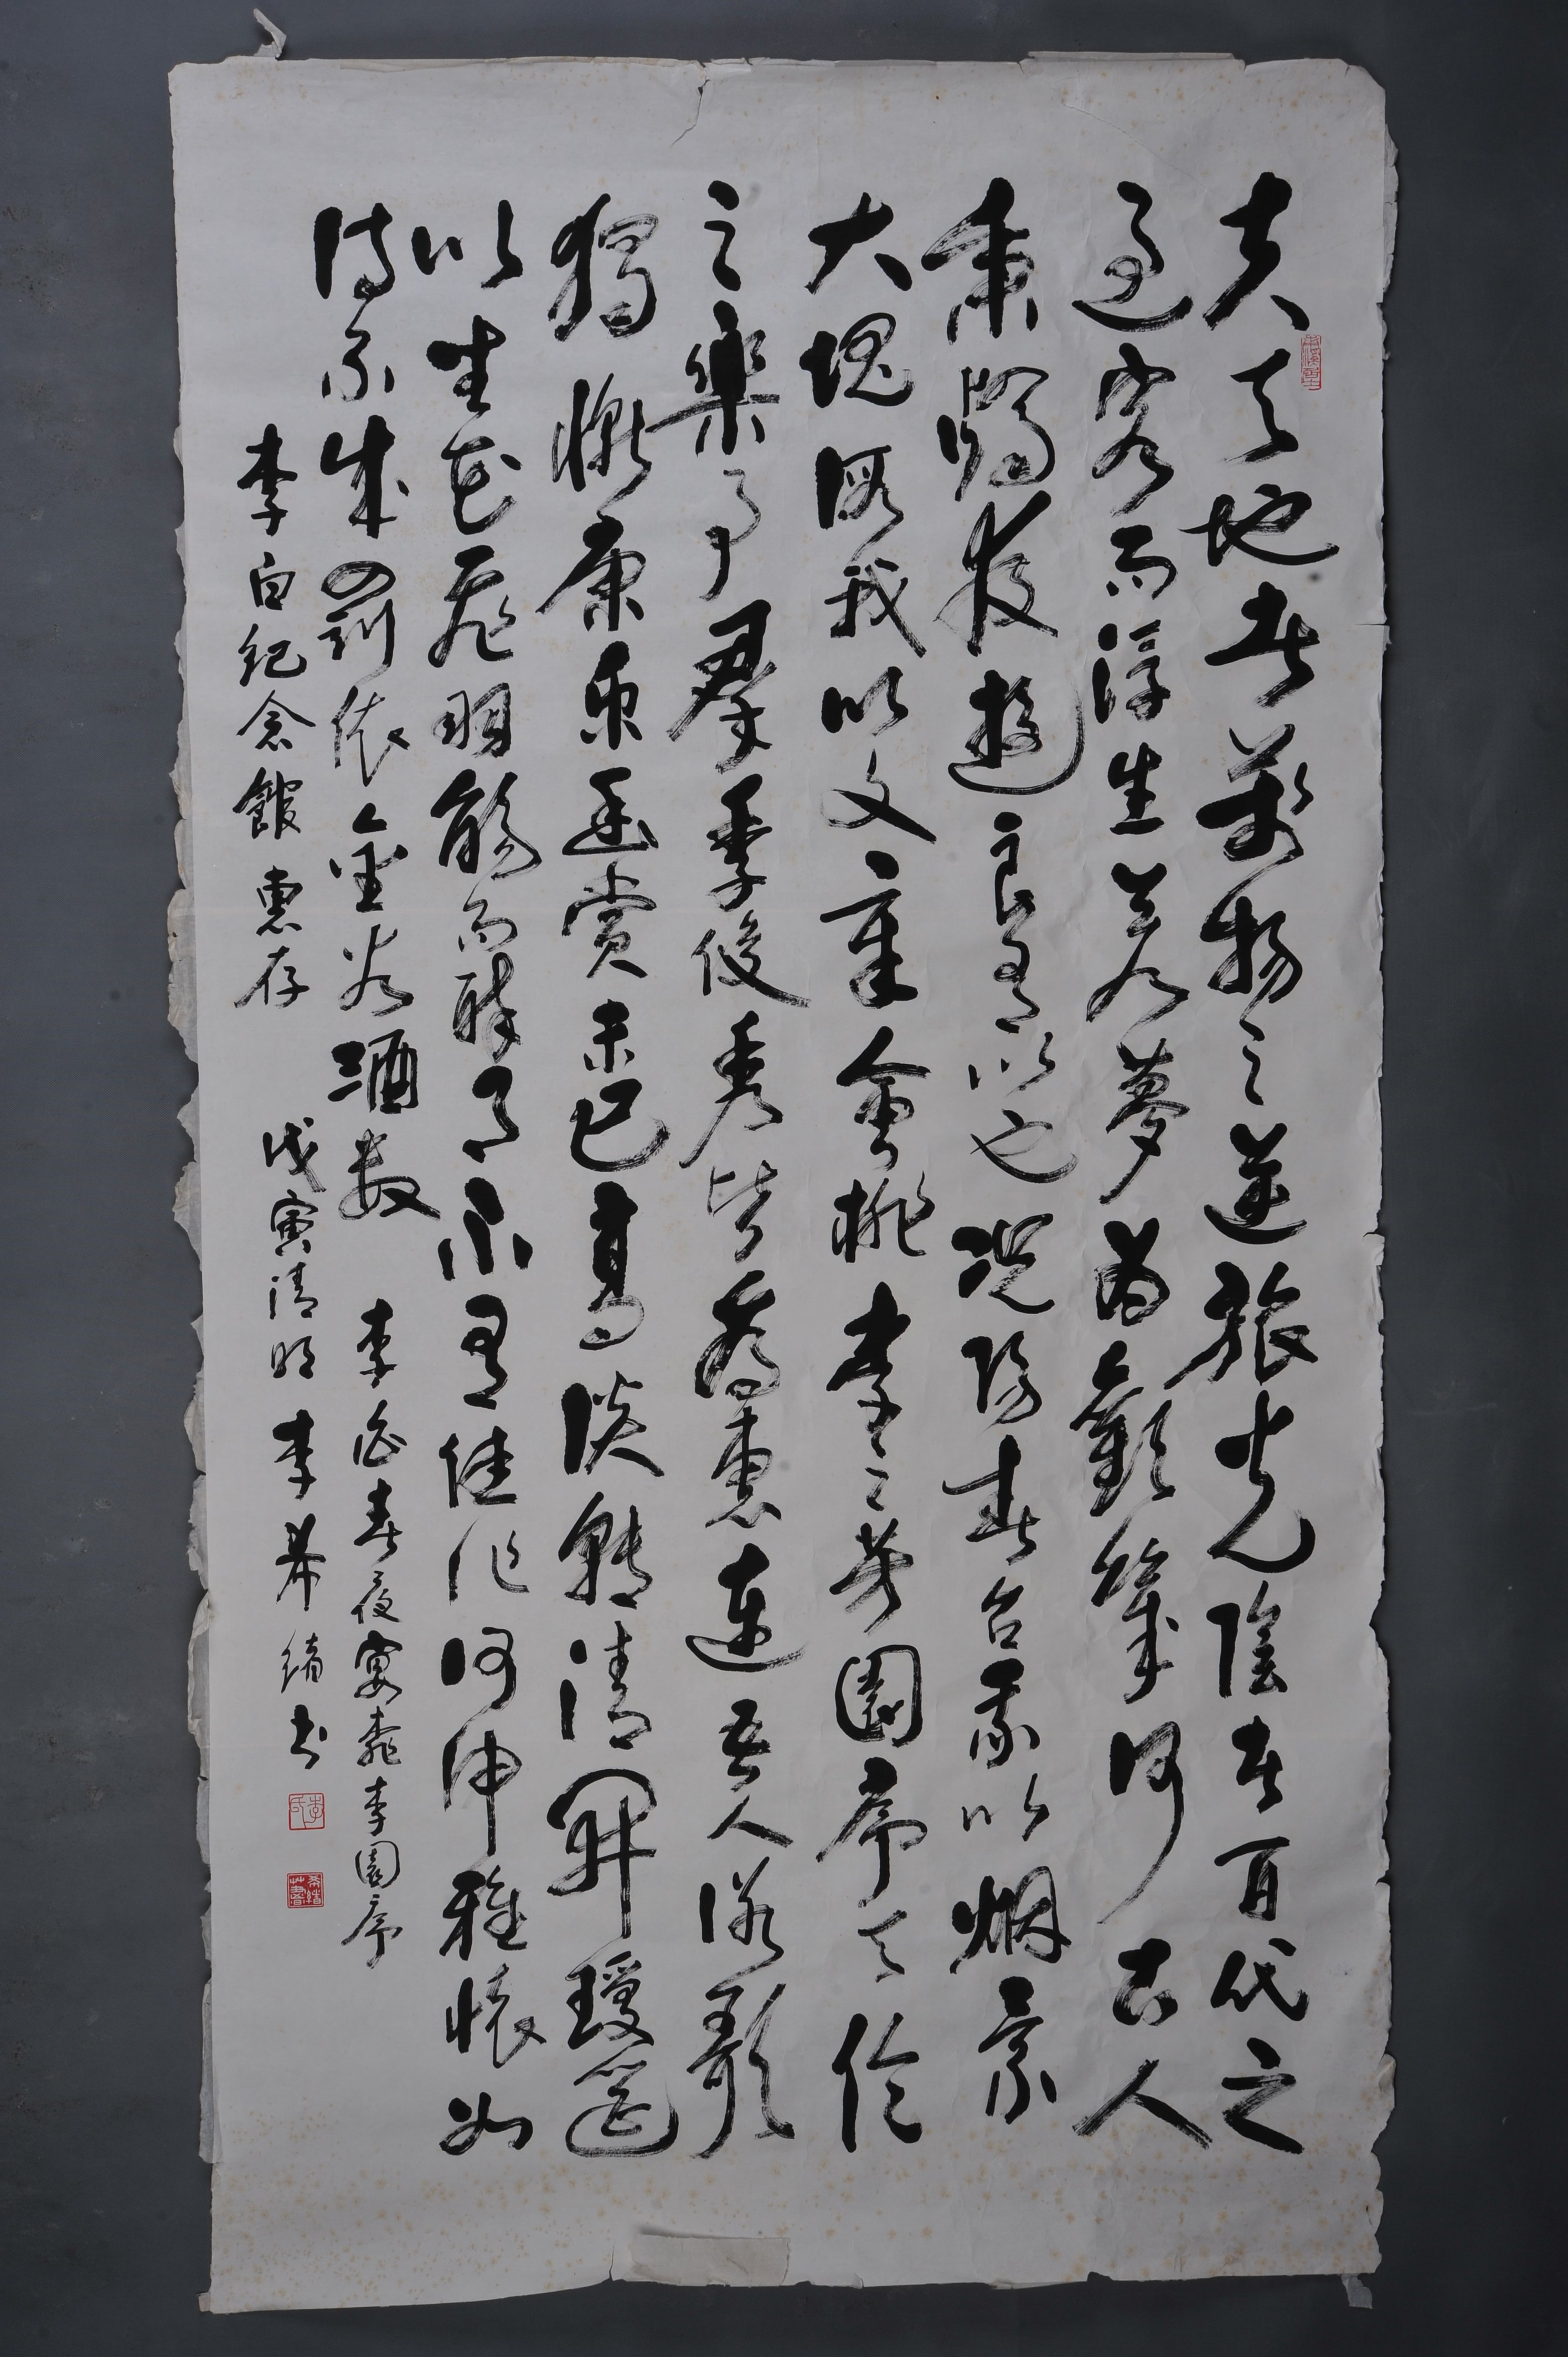 夫天地者萬物之逆旅光陰者百代之
過客而浮生若夢為歡幾何古人
秉燭夜遊良有以也況陽春召我以烟景
大塊假我以文章會桃李之芳園序天倫
之樂事羣季俊秀皆為惠連吾人詠歌
獨慚康樂幽賞未已高談轉清開瓊筵
以坐花飛羽觴而醉月不有佳作何伸雅懷如
詩不成罰依金谷酒數 李白春夜宴桃李園序
李白紀念館惠存 戊寅清明 李希緒書
李氏